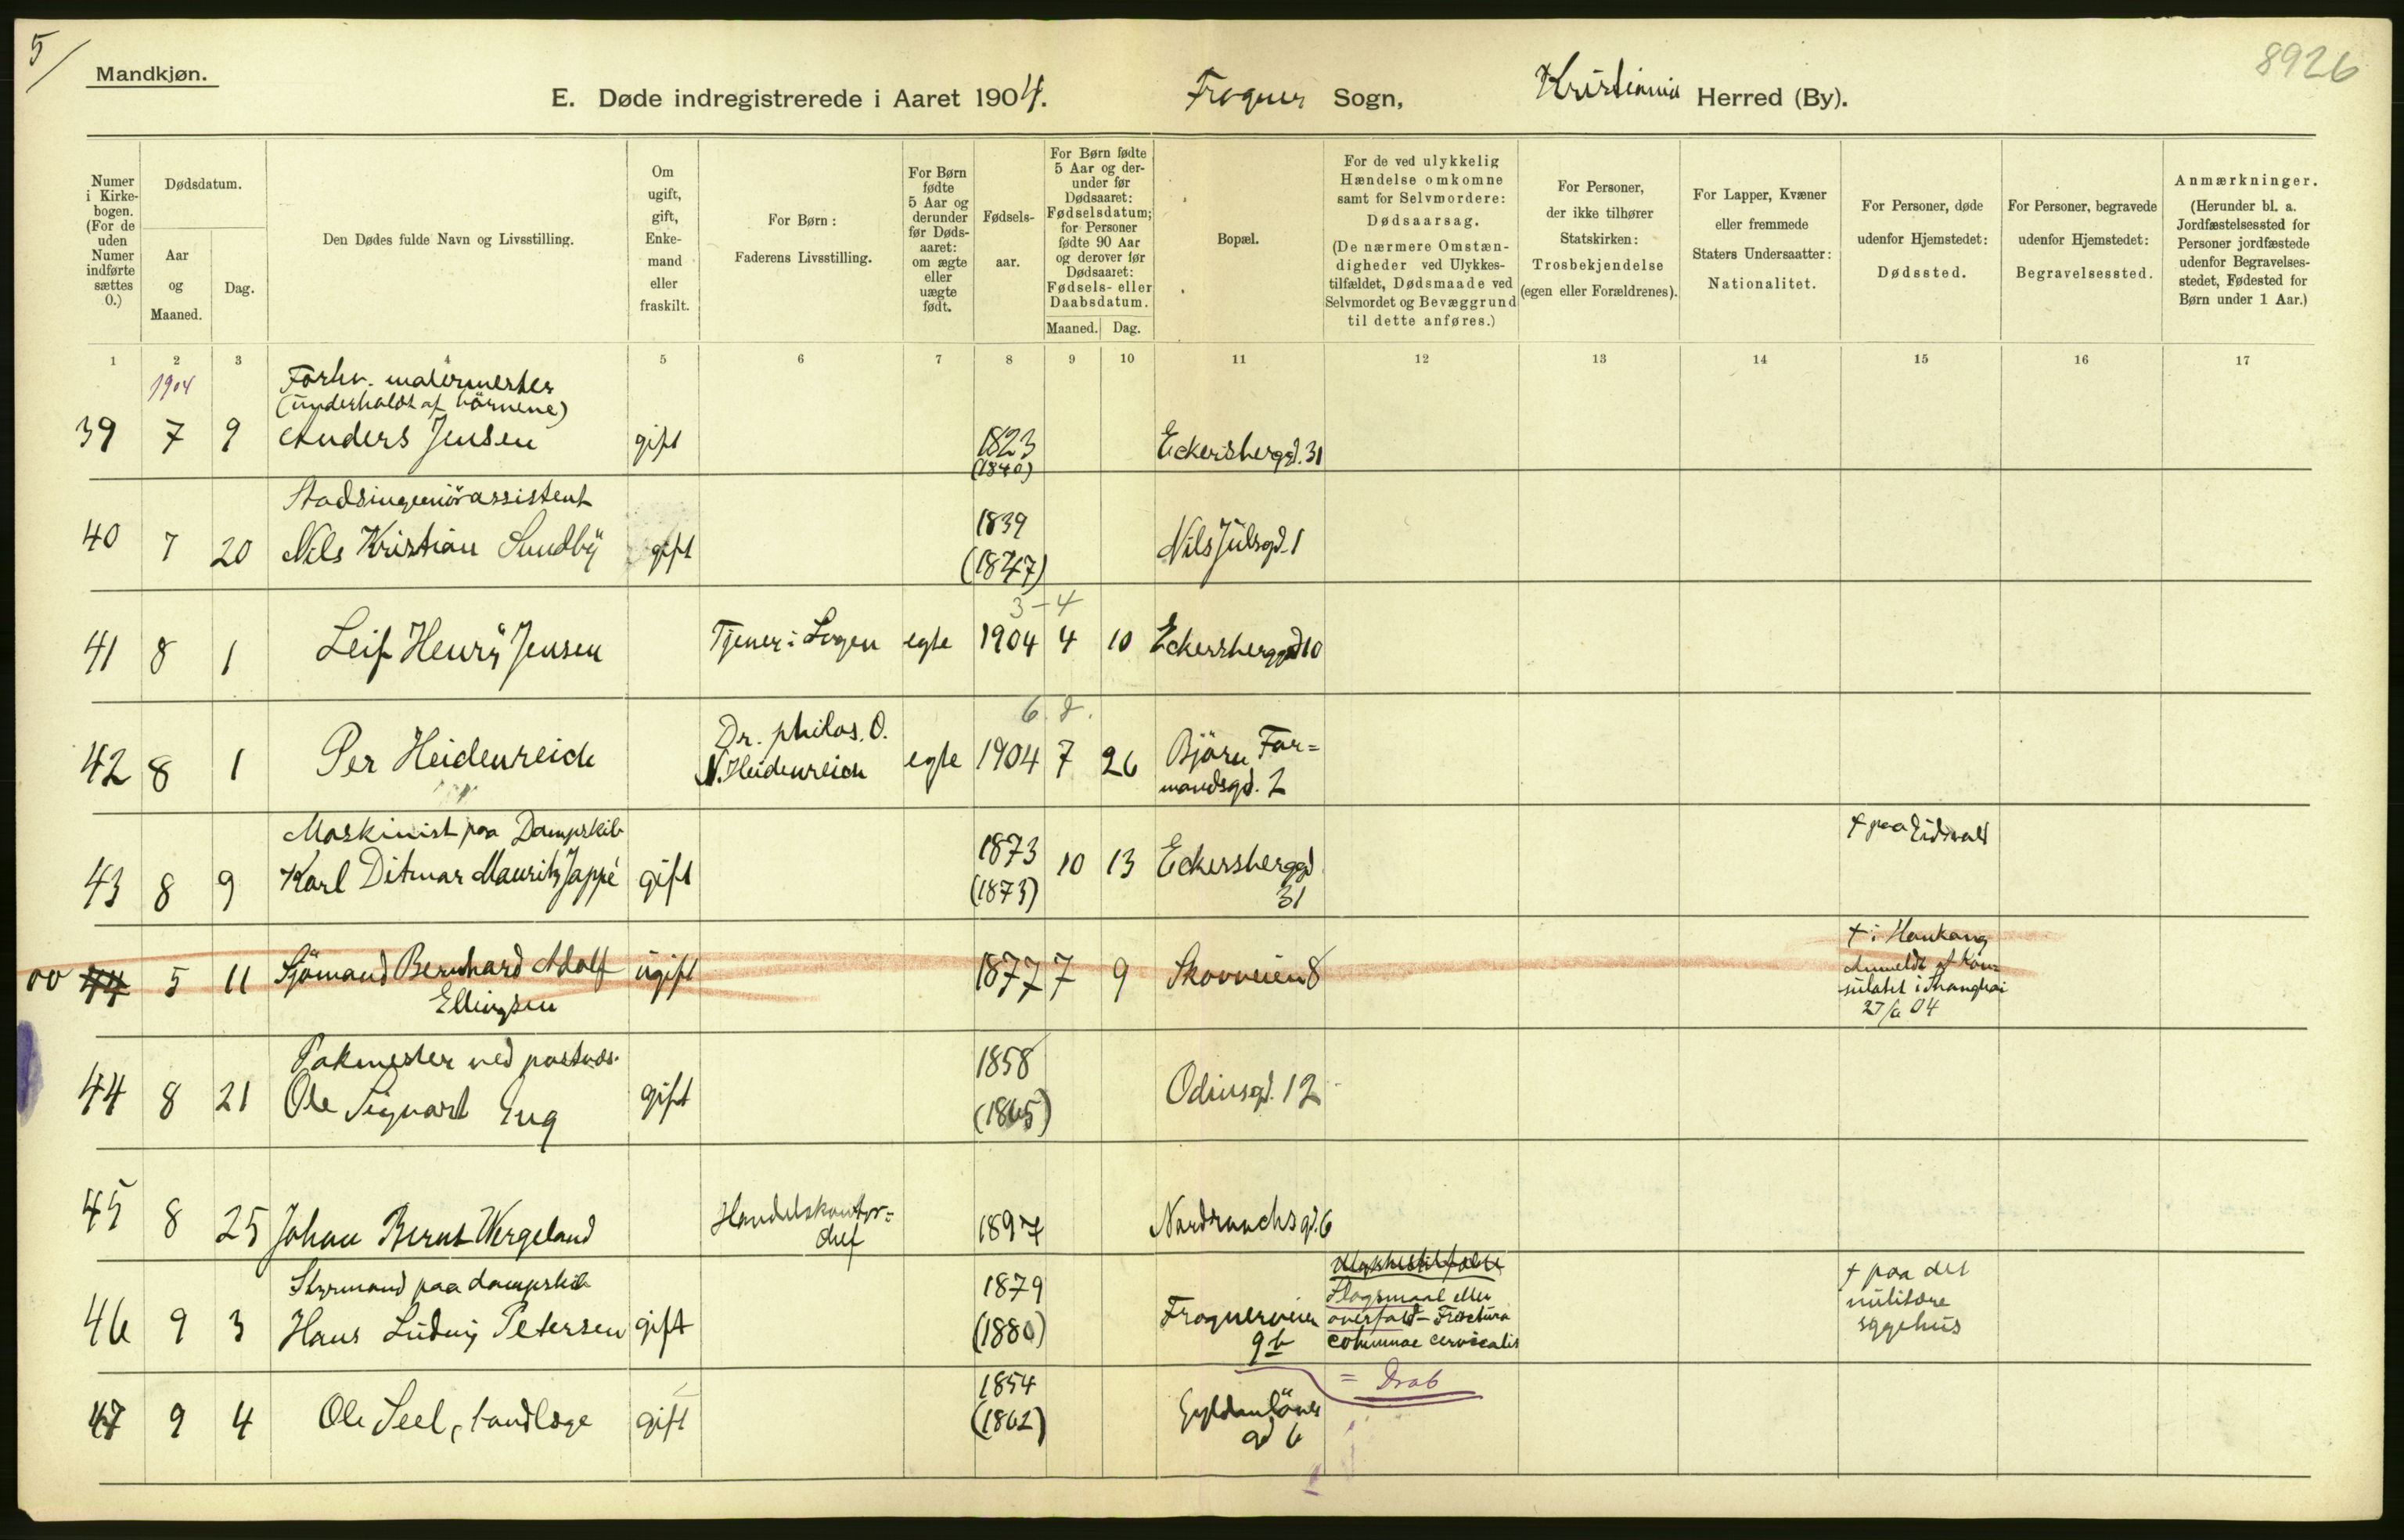 5/
Mandkjøn.
8926
E. Døde indregistrerede i Aaret 1904. Frogner Sogn, Kristiania Herred (By).
Numer i Kirkebogen. (For de uden Numer indførte sættes 0.)
Dødsdatum.
Aar og Maaned.
Dag.
Den Dødes fulde Navn og Livsstilling.
Om ugift, gift, Enkemand eller fraskilt.
For Børn: Faderens Livsstilling.
For Børn fødte 5 Aar og derunder før Dødsaaret: om ægte eller uægte født.
Fødselsaar.
For Børn fødte 5 Aar og derunder før Dødsaaret: Fødselsdatum; for Personer fødte 90 Aar og derover før Dødsaaret: Fødsels- eller Daabsdatum.
Maaned. Dag.
Bopæl.
For de ved ulykkelig Hændelse omkomne samt for Selvmordere: Dødsaarsag. (De nærmere Omstændigheder ved Ulykkestilfældet, Dødsmaade ved Selvmordet og Bevæggrund til dette anføres.)
For Personer, der ikke tilhører Statskirken: Trosbekjendelse (egen eller Forældrenes).
For Lapper, Kvæner eller fremmede Staters Undersaatter: Nationalitet.
For Personer, døde udenfor Hjemstedet: Dødssted.
For Personer, begravede udenfor Hjemstedet: Begravelsessted.
Anmærkninger. (Herunder bl. a. Jordfæstelsessted for Personer jordfæstede udenfor Begravelsesstedet, Fødested for Børn under 1 Aar.)
1 2 3 4 5 6 7 8 9 10 11 12 13 14 15 16 17
1904
Forhv. malermester
(underholdt af børnene)
39 7 9 Anders Jensen gift 1823 Eckersberggd. 31
(1840)
Stadsingeniörassistent
40 7 20 Nils Kristian Sundby gift 1839 Nils Julsgd. 1
(1847)
3-4
41 8 1 Leif Henry Jensen Tjener i Logen egte 1904 4 10 Eckersberggd 10
6. d.
Dr. philos. O.
42 8 1 Per Heidenreich N. Heidenreich egte 1904 7 26 Björn Far=
mandsgd. 2
Maskinist paa Dampskib
43 8 9 Karl Ditmar Mauritz Jappé gift 1873 10 13 Eckersberggd † paa Eidsvold
(1873) 31
00 44 5 11 Sjömand Bernhard Adolf ugift 1877 7 9 Skovveien 8 † i Hankang
Ellingsen
Anmeldt af Kon=
sulatet i Shanghai
27/6 04
Pakmester ved postvæs.
44 8 21 Ole Sigvart Eng gift 1858 Odinsgd. 12
(1865)
45 8 25 Johan Bernt Wergeland Handelskontor= 1897 Nordraachsgd. 6
chef
Styrmand paa dampskib
46 9 3 Hans Ludvig Petersen gift 1879 Frognerveien
(1880) 9b
Slagsmaal eller
overfald - Fractura
columnae cervicalis
= Drab
† paa det
militære
sygehus
47 9 4 Ole Seel, tandlæge gift 1854 Gyldenlöves
(1862) gd 6